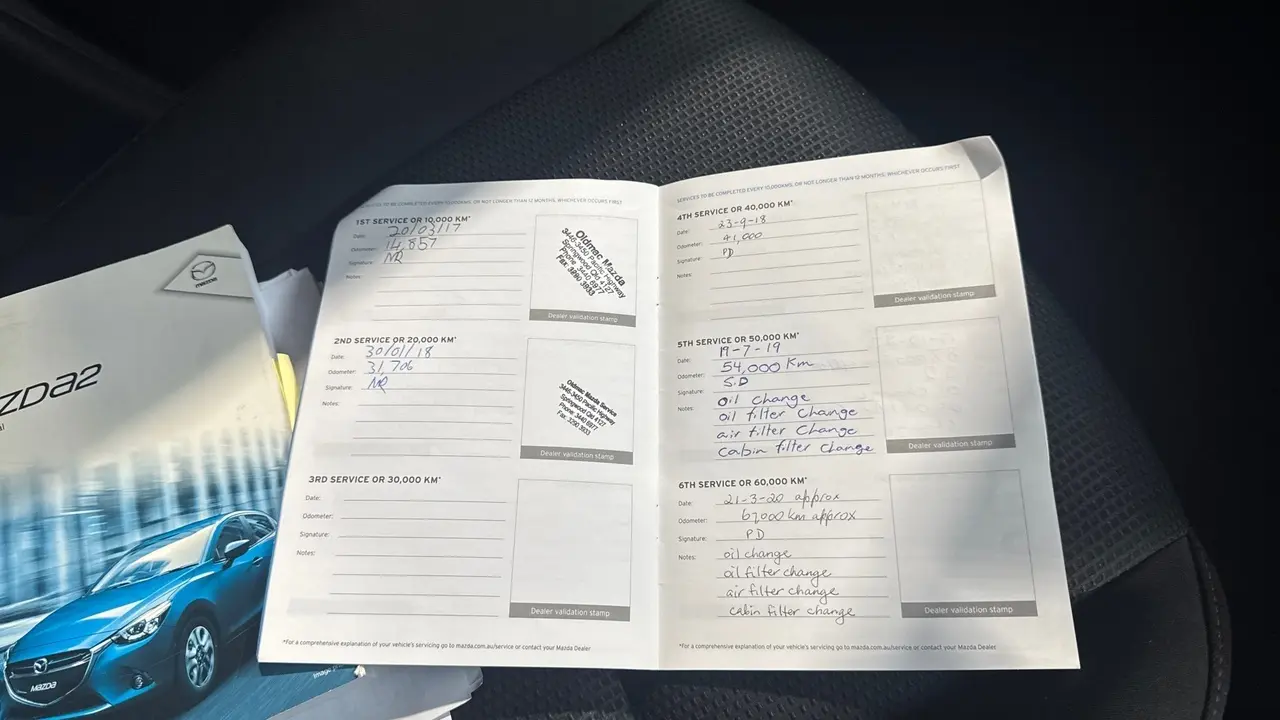 SERVICES TO BE COMPLETED EVERY 10,000KMS, OR NOT LONGER THAN 12 MONTHS, WHICHEVER OCCURS FIRST
1ST SERVICE OR 10,000 KM*
Date: 20/03/17
Odometer: 14,857
Signature: NR
Notes:
Oldmac Mazda
3446-3450 Pacific Highway
Springwood Qld 4127
Phone: 3440 8977
Fax: 3290 3933
Dealer validation stamp
2ND SERVICE OR 20,000 KM*
Date: 30/01/18
Odometer: 31,706
Signature: NR
Notes:
Oldmac Mazda Service
3446-3450 Pacific Highway
Springwood Qld 4127
Phone: 3440 8977
Fax: 3290 3933
Dealer validation stamp
3RD SERVICE OR 30,000 KM*
Date:
Odometer:
Signature:
Notes:
Dealer validation stamp
*For a comprehensive explanation of your vehicle's servicing go to mazda.com.au/service or contact your Mazda Dealer
SERVICES TO BE COMPLETED EVERY 10,000KMS, OR NOT LONGER THAN 12 MONTHS, WHICHEVER OCCURS FIRST
4TH SERVICE OR 40,000 KM*
Date: 23-9-18
Odometer: 41,000
Signature: PD
Notes:
Dealer validation stamp
5TH SERVICE OR 50,000 KM*
Date: 19-7-19
Odometer: 54,000 Km
Signature: S.D
Notes: oil change
oil filter change
air filter change
cabin filter change
Dealer validation stamp
6TH SERVICE OR 60,000 KM*
Date: 21-3-20 approx
Odometer: km approx
Signature: P.D
Notes: oil change
oil filter change
air filter change
cabin filter change
Dealer validation stamp
*For a comprehensive explanation of your vehicle's servicing go to mazda.com.au/service or contact your Mazda Dealer
mazda
ZDA2
mazda